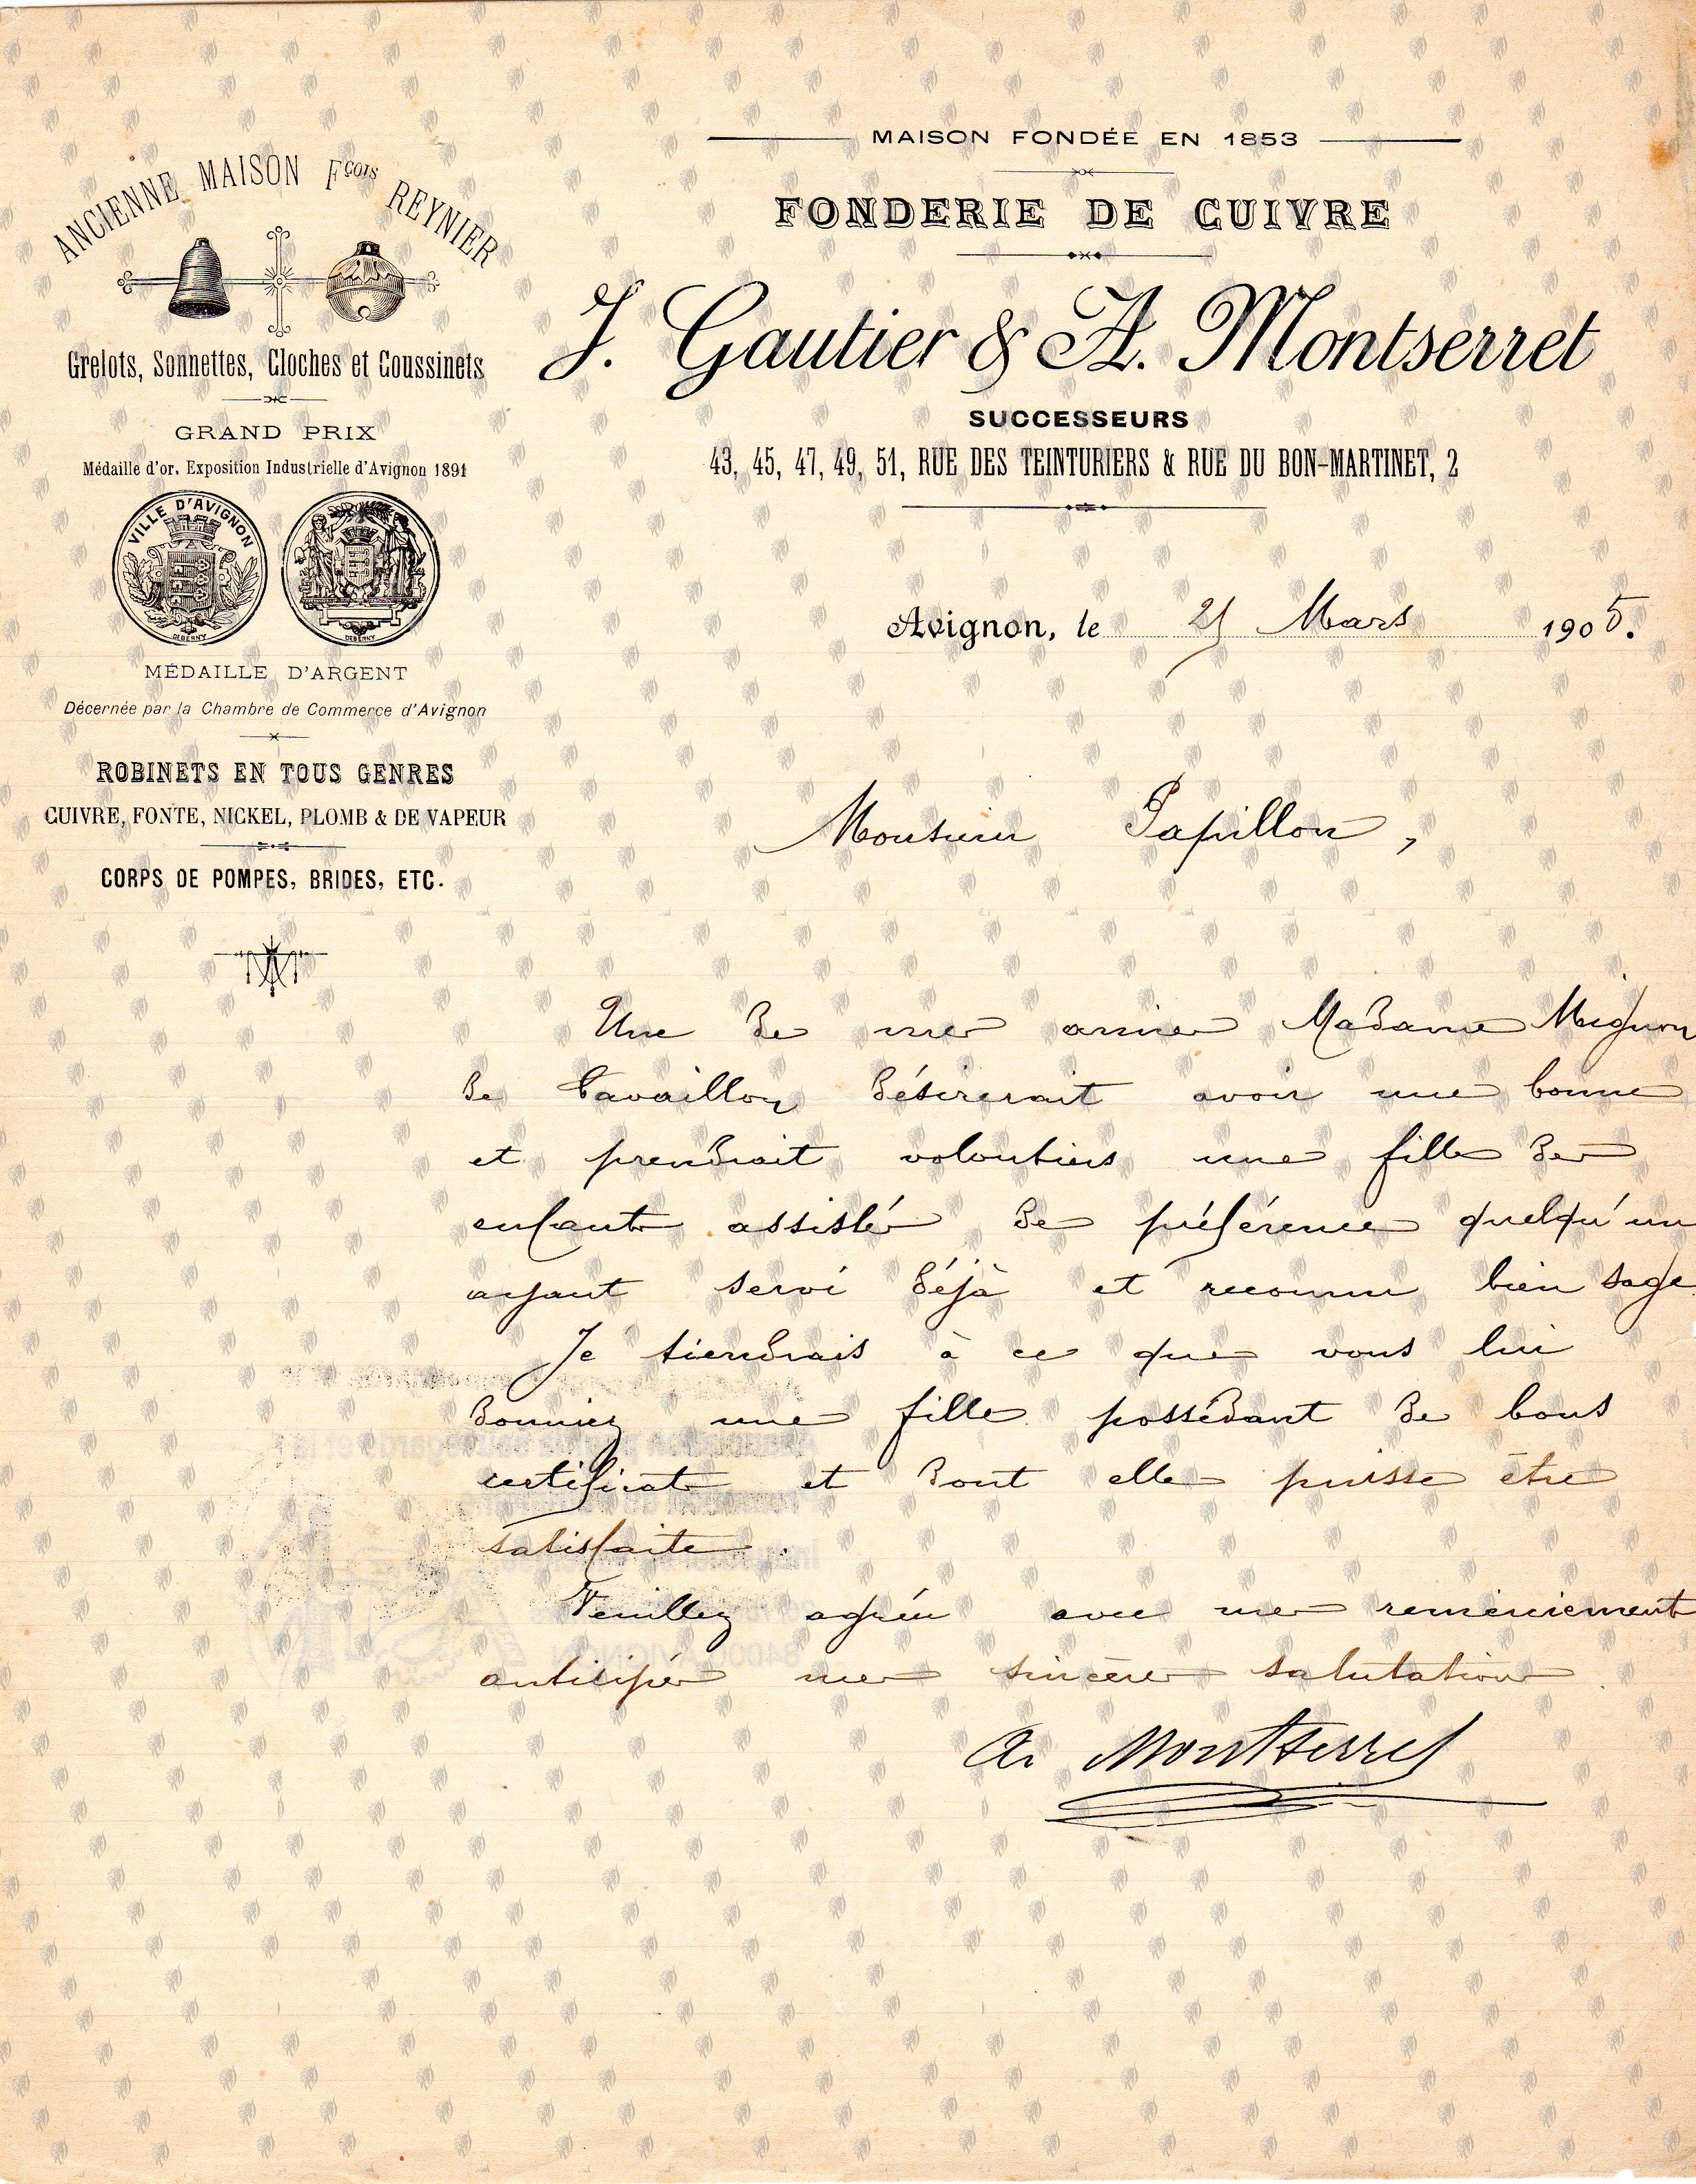 MAISON FONDÉE EN 1853
FONDERIE DE CUIVRE
J. Gautier & A. Montserret
SUCCESSEURS
43, 45, 47, 49, 51, RUE DES TEINTURIERS & RUE DU BON-MARTINET, 2
ANCIENNE MAISON Fçois REYNIER
Grelots, Sonnettes, Cloches et Coussinets
GRAND PRIX
Médaille d'or, Exposition Industrielle d'Avignon 1891
VILLE D'AVIGNON
DEBERNY
DEBERNY
MÉDAILLE D'ARGENT
Décernée par la Chambre de Commerce d'Avignon
ROBINETS EN TOUS GENRES
CUIVRE, FONTE, NICKEL, PLOMB & DE VAPEUR
CORPS DE POMPES, BRIDES, ETC.
Avignon, le Mars 1905.
Monsieur Papillon,
Une de mes amies Madame Mignon
de Cavaillon désirerait avoir une bonne
et prendrait volontiers une fille des
enfants assistés de préférence quelqu'un
ayant servi déjà et reconnu bien sage
Je tiendrais à ce que vous lui
donniez une fille possédant de bons
certificats et dont elle puisse être
satisfaite.
Veuillez agréer avec mes remerciements
anticipés mes sincères salutations.
A. Montserret
84000 AVIGNON